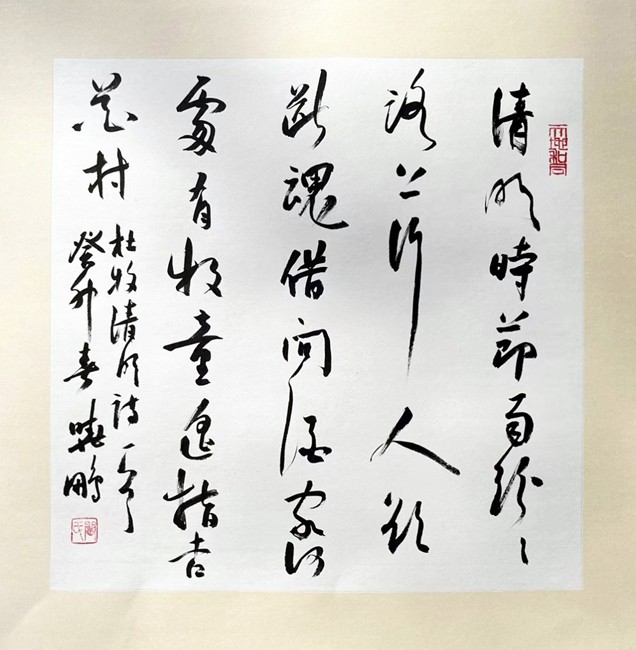 清明時節雨紛〻
路上行人欲
断魂借問酒家何
處有牧童遥指杏
花村
杜牧清明詩一首
癸卯春 曉鵬